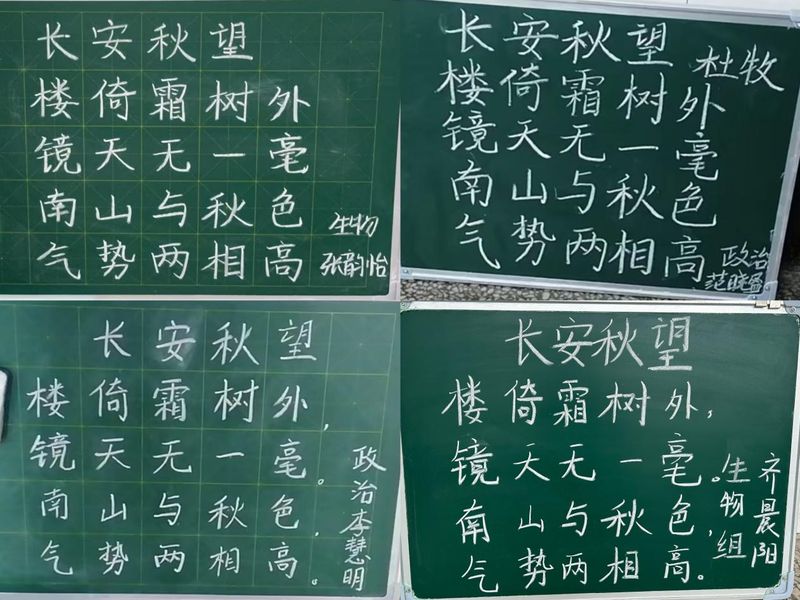 长安秋望
楼倚霜树外
镜天无一毫
南山与秋色
气势两相高
生物
张韵怡
长安秋望
杜牧
楼倚霜树外
镜天无一毫
南山与秋色
气势两相高
政治
范晓
长安秋望
楼倚霜树外，
镜天无一毫。
南山与秋色，
气势两相高。
政治李慧明
长安秋望
楼倚霜树外，
镜天无一毫。
南山与秋色，
气势两相高。
生物组
齐晨阳